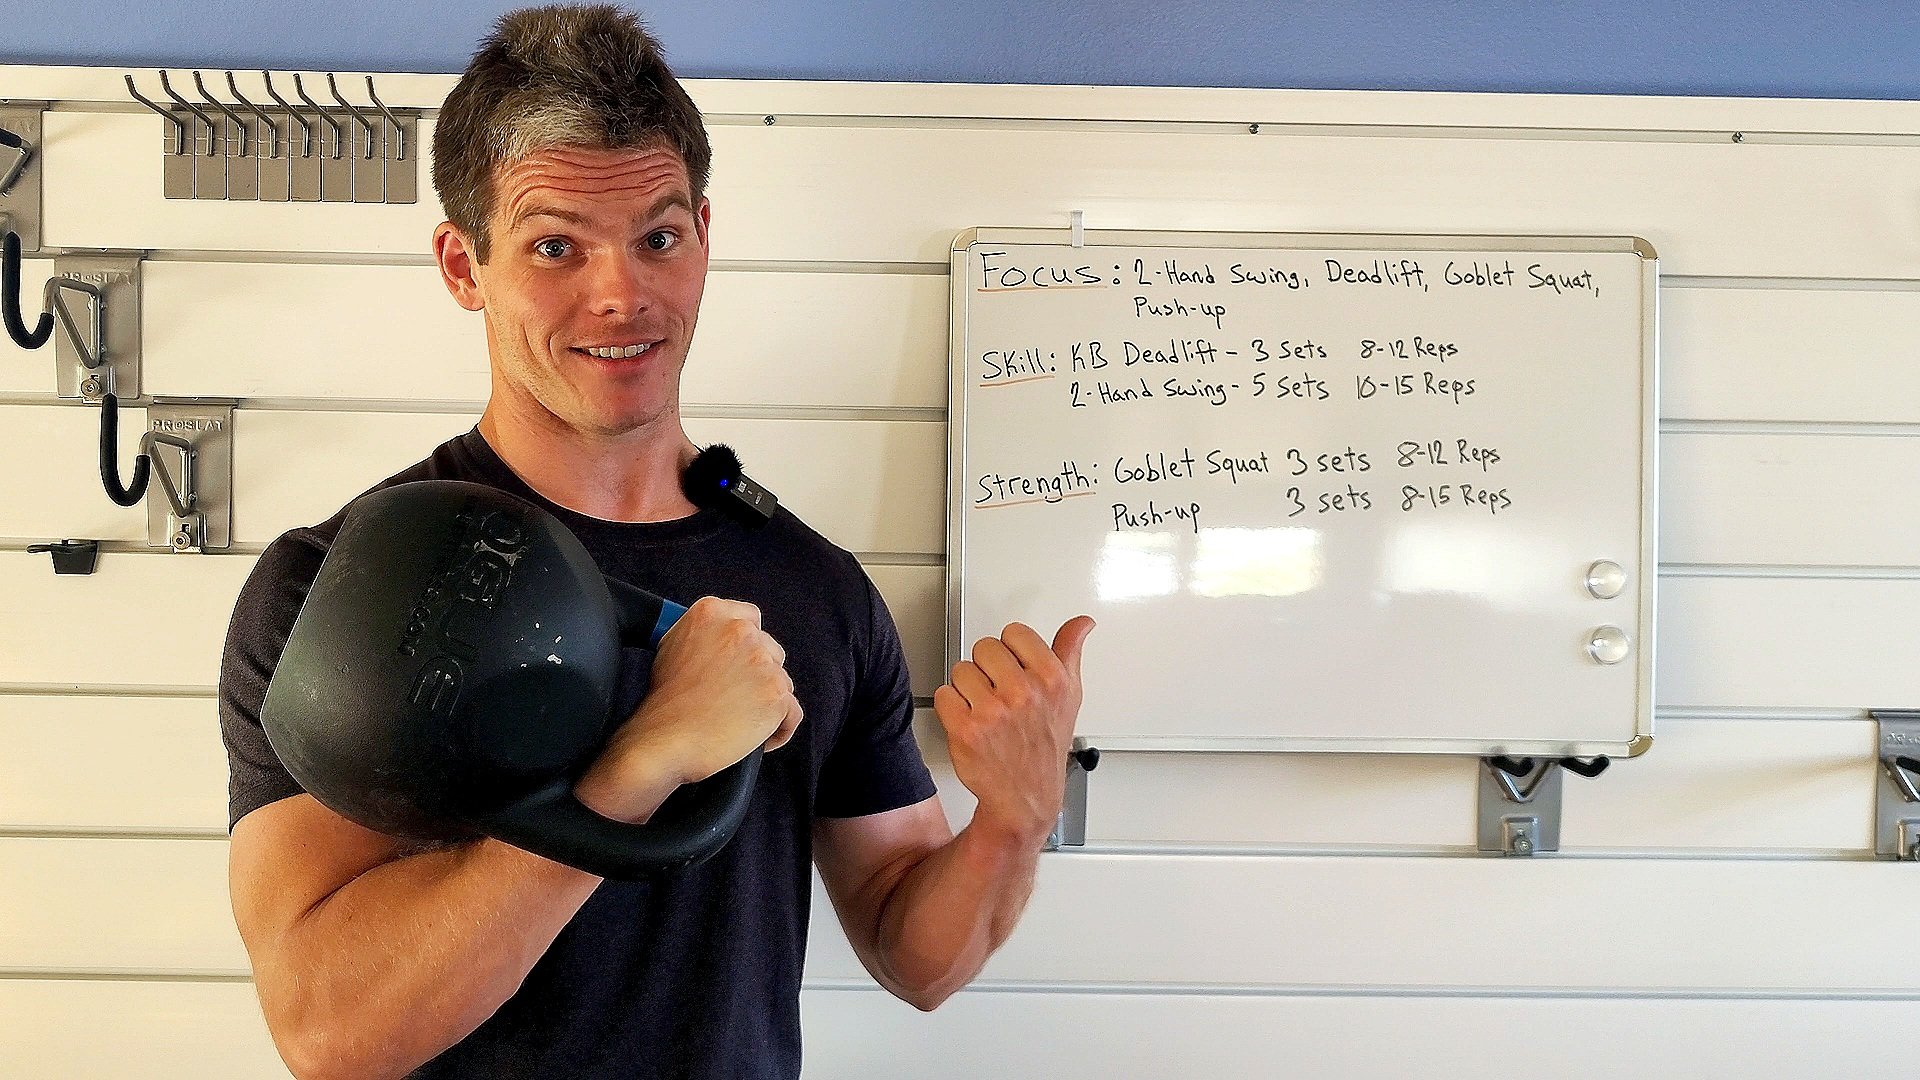 Focus: 2-Hand Swing, Deadlift, Goblet Squat,
Push-up
Skill: KB Deadlift - 3 Sets 8-12 Reps
2-Hand Swing - 5 Sets 10-15 Reps
Strength: Goblet Squat 3 sets 8-12 Reps
Push-up 3 sets 8-15 Reps
PROSLAT
PROSLAT